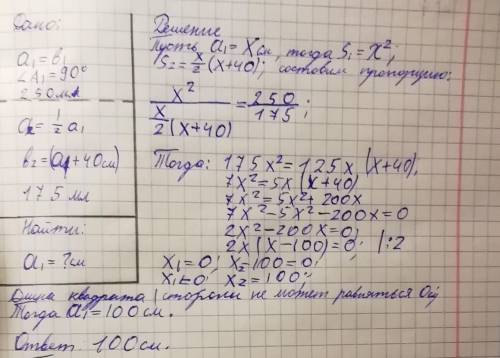 Дано:
a₁ = b₁
∠A₁ = 90°
250мл
a₂ = 1/2 a₁
b₂ = (a₁ + 40см)
175 мл
Найти:
a₁ = ? см
Решение
Пусть a₁ = x см, тогда S₁ = x²;
S₂ = x/2 (x+40); составим пропорцию:
x² / (x/2 (x+40)) = 250/175;
Тогда: 175x² = 125x (x+40),
7x² = 5x (x+40)
7x² = 5x² + 200x
7x² - 5x² - 200x = 0
2x² - 200x = 0;
2x (x - 100) = 0; | :2
x₁ = 0; x₂ - 100 = 0;
x₁ ≠ 0; x₂ = 100.
квадрата (стороны не может равняться 0);
Тогда a₁ = 100 см.
Ответ 100см.